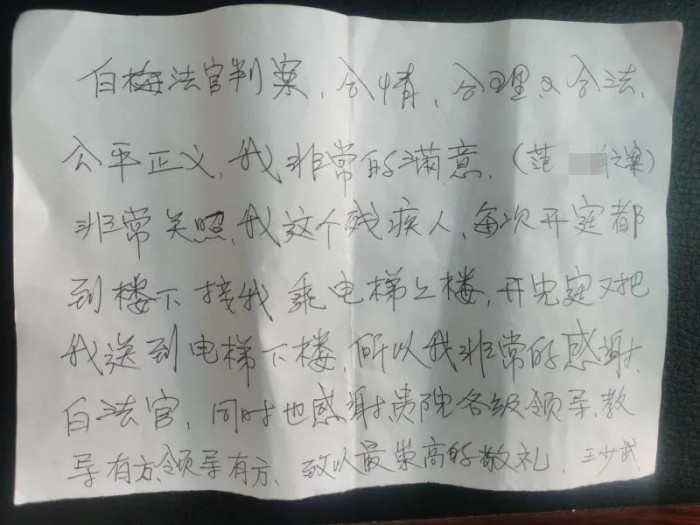 白梅法官判案，合情，合理又合法，
公平正义，我非常的满意，（范 之案）
非常关照，我这个残疾人，每次开庭都
到楼下接我乘电梯上楼，开完庭又把
我送到电梯下楼，所以我非常的感谢
白法官，同时也感谢贵院各级领导，教
导有方，领导有方，致以最崇高的敬礼，王少武